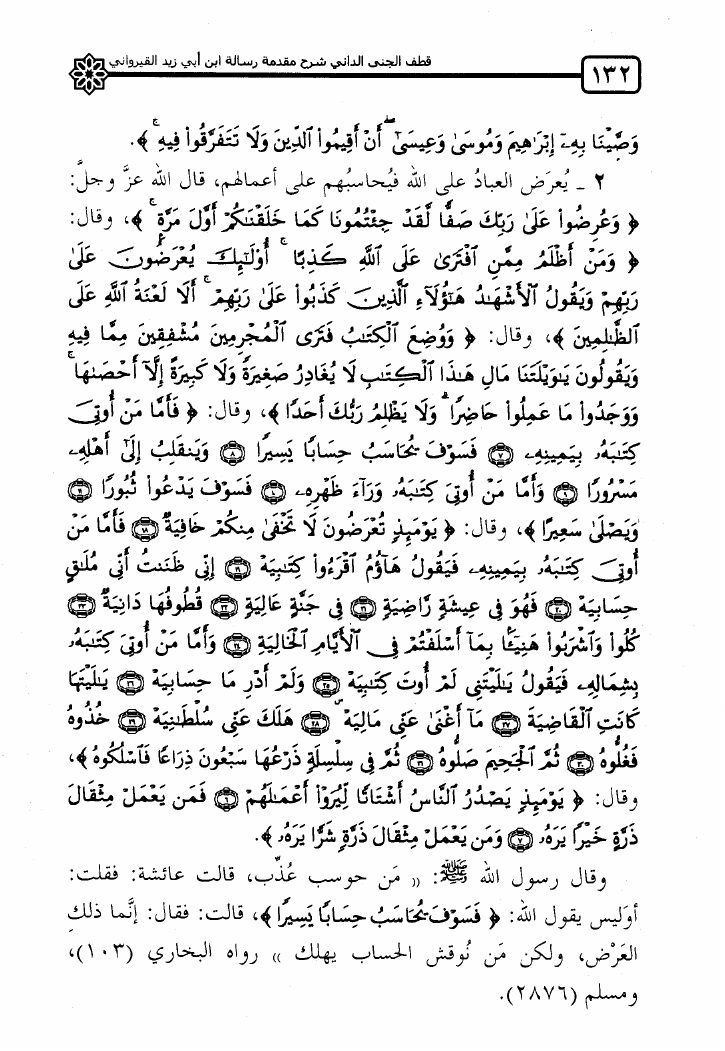 قطف الجنى الداني شرح مقدمة رسالة ابن أبي زيد القيرواني
١٣٢
وَصَّيْنَا بِهِۦٓ إِبْرَٰهِيمَ وَمُوسَىٰ وَعِيسَىٰٓ ۖ أَنْ أَقِيمُوا۟ ٱلدِّينَ وَلَا تَتَفَرَّقُوا۟ فِيهِ ۚ ﴾.
٢ ـ يُعرَض العبادُ على الله فيُحاسبُهم على أعمالهم، قال الله عزَّ وجلَّ:
﴿ وَعُرِضُوا۟ عَلَىٰ رَبِّكَ صَفًّا لَّقَدْ جِئْتُمُونَا كَمَا خَلَقْنَـٰكُمْ أَوَّلَ مَرَّةٍۭ ۚ ﴾، وقال:
﴿ وَمَنْ أَظْلَمُ مِمَّنِ ٱفْتَرَىٰ عَلَى ٱللَّهِ كَذِبًا ۚ أُو۟لَـٰٓئِكَ يُعْرَضُونَ عَلَىٰ
رَبِّهِمْ وَيَقُولُ ٱلْأَشْهَـٰدُ هَـٰٓؤُلَآءِ ٱلَّذِينَ كَذَبُوا۟ عَلَىٰ رَبِّهِمْ ۚ أَلَا لَعْنَةُ ٱللَّهِ عَلَى
ٱلظَّـٰلِمِينَ ﴾، وقال: ﴿ وَوُضِعَ ٱلْكِتَـٰبُ فَتَرَى ٱلْمُجْرِمِينَ مُشْفِقِينَ مِمَّا فِيهِ
وَيَقُولُونَ يَـٰوَيْلَتَنَا مَالِ هَـٰذَا ٱلْكِتَـٰبِ لَا يُغَادِرُ صَغِيرَةً وَلَا كَبِيرَةً إِلَّآ أَحْصَىٰهَا ۚ
وَوَجَدُوا۟ مَا عَمِلُوا۟ حَاضِرًا ۗ وَلَا يَظْلِمُ رَبُّكَ أَحَدًا ﴾، وقال: ﴿ فَأَمَّا مَنْ أُوتِىَ
كِتَـٰبَهُۥ بِيَمِينِهِۦ ٧ فَسَوْفَ يُحَاسَبُ حِسَابًا يَسِيرًا ٨ وَيَنقَلِبُ إِلَىٰٓ أَهْلِهِۦ
مَسْرُورًا ٩ وَأَمَّا مَنْ أُوتِىَ كِتَـٰبَهُۥ وَرَآءَ ظَهْرِهِۦ ١٠ فَسَوْفَ يَدْعُوا۟ ثُبُورًا ١١
وَيَصْلَىٰ سَعِيرًا ﴾، وقال: ﴿ يَوْمَئِذٍ تُعْرَضُونَ لَا تَخْفَىٰ مِنكُمْ خَافِيَةٌ ١٨ فَأَمَّا مَنْ
أُوتِىَ كِتَـٰبَهُۥ بِيَمِينِهِۦ فَيَقُولُ هَآؤُمُ ٱقْرَءُوا۟ كِتَـٰبِيَهْ ١٩ إِنِّى ظَنَنتُ أَنِّى مُلَـٰقٍ
حِسَابِيَهْ ٢٠ فَهُوَ فِى عِيشَةٍ رَّاضِيَةٍ ٢١ فِى جَنَّةٍ عَالِيَةٍ ٢٢ قُطُوفُهَا دَانِيَةٌ ٢٣
كُلُوا۟ وَٱشْرَبُوا۟ هَنِيٓـًٔۢا بِمَآ أَسْلَفْتُمْ فِى ٱلْأَيَّامِ ٱلْخَالِيَةِ ٢٤ وَأَمَّا مَنْ أُوتِىَ كِتَـٰبَهُۥ
بِشِمَالِهِۦ فَيَقُولُ يَـٰلَيْتَنِى لَمْ أُوتَ كِتَـٰبِيَهْ ٢٥ وَلَمْ أَدْرِ مَا حِسَابِيَهْ ٢٦ يَـٰلَيْتَهَا
كَانَتِ ٱلْقَاضِيَةَ ٢٧ مَآ أَغْنَىٰ عَنِّى مَالِيَهْ ۜ ٢٨ هَلَكَ عَنِّى سُلْطَـٰنِيَهْ ٢٩ خُذُوهُ
فَغُلُّوهُ ٣٠ ثُمَّ ٱلْجَحِيمَ صَلُّوهُ ٣١ ثُمَّ فِى سِلْسِلَةٍ ذَرْعُهَا سَبْعُونَ ذِرَاعًا فَٱسْلُكُوهُ ﴾،
وقال: ﴿ يَوْمَئِذٍ يَصْدُرُ ٱلنَّاسُ أَشْتَاتًا لِّيُرَوْا۟ أَعْمَـٰلَهُمْ ٦ فَمَن يَعْمَلْ مِثْقَالَ
ذَرَّةٍ خَيْرًا يَرَهُۥ ٧ وَمَن يَعْمَلْ مِثْقَالَ ذَرَّةٍ شَرًّا يَرَهُۥ ﴾.
وقال رسول الله ﷺ: (( مَن حوسب عُذِّب، قالت عائشة: فقلت:
أوَليس يقول الله: ﴿ فَسَوْفَ يُحَاسَبُ حِسَابًا يَسِيرًا ﴾، قالت: فقال: إنَّما ذلكِ
العَرْض، ولكن مَن نُوقش الحساب يهلك )) رواه البخاري (١٠٣)،
ومسلم (٢٨٧٦).